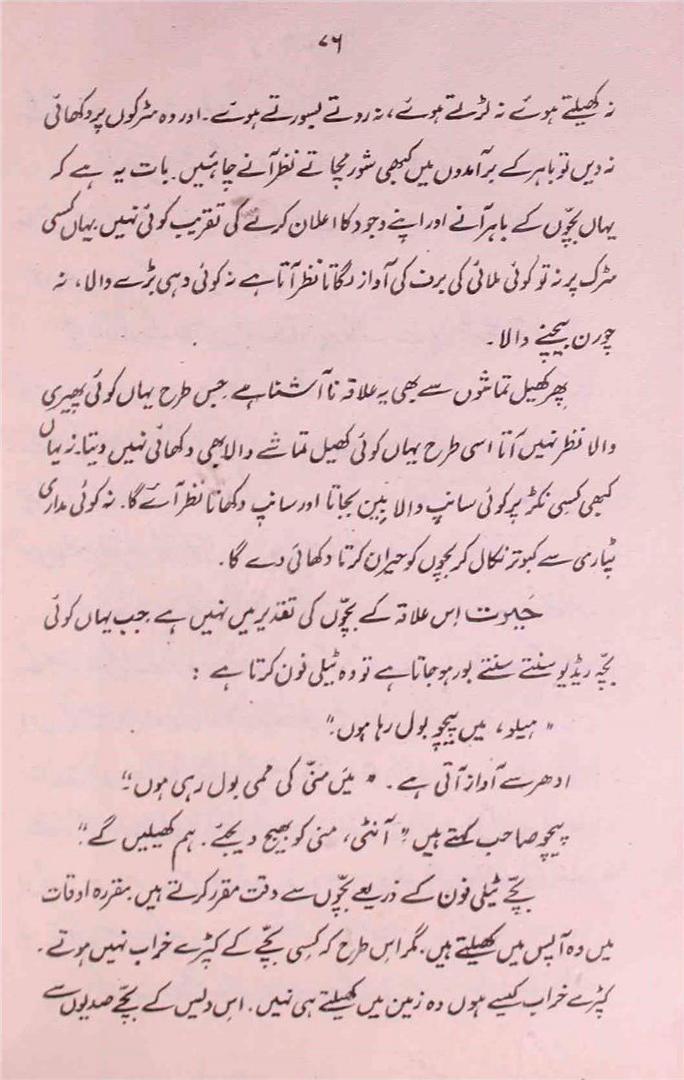 ۷۶
نہ کھیلتے ہوئے نہ لڑتے ہوئے، نہ روتے بسورتے ہوئے۔ اور وہ سڑکوں پر دکھائی
نہ دیں تو باہر کے برآمدوں میں کبھی شور مچاتے نظر آنے چاہئیں۔ بات یہ ہے کہ
یہاں بچّوں کے باہر آنے اور اپنے وجود کا اعلان کرنے کی تقریب کوئی نہیں۔ یہاں کسی
سڑک پر نہ تو کوئی ملائی کی برف کی آواز لگاتا نظر آتا ہے نہ کوئی دہی بڑے والا، نہ
چورن بیچنے والا۔
پھر کھیل تماشوں سے بھی یہ علاقہ ناآشنا ہے جس طرح یہاں کوئی پھیری
والا نظر نہیں آتا اسی طرح یہاں کوئی کھیل تماشے والا بھی دکھائی نہیں دیتا۔ نہ یہاں
کبھی کسی نکڑ پر کوئی سانپ والا بین بجاتا اور سانپ دکھاتا نظر آئے گا۔ نہ کوئی مداری
پٹاری سے کبوتر نکال کر بچوں کو حیران کرتا دکھائی دے گا۔
خلوت اِس علاقہ کے بچّوں کی تقدیر میں نہیں ہے جب یہاں کوئی
بچّہ ریڈیو سنتے سنتے بور ہو جاتا ہے تو وہ ٹیلی فون کرتا ہے :
"ہیلو، میں پیچو بول رہا ہوں۔"
ادھر سے آواز آتی ہے۔ "میں منّی کی ممی بول رہی ہوں۔"
پیچو صاحب کہتے ہیں "آنٹی، منی کو بھیج دیجئے۔ ہم کھیلیں گے۔"
بچّے ٹیلی فون کے ذریعے بچّوں سے وقت مقرر کرتے ہیں۔ مقررہ اوقات
میں وہ آپس میں کھیلتے ہیں۔ مگر اس طرح کہ کسی بچّے کے کپڑے خراب نہیں ہوتے۔
کپڑے خراب کیسے ہوں وہ زمین میں کھیلتے ہی نہیں۔ اِس دیس کے بچّے صدیوں سے